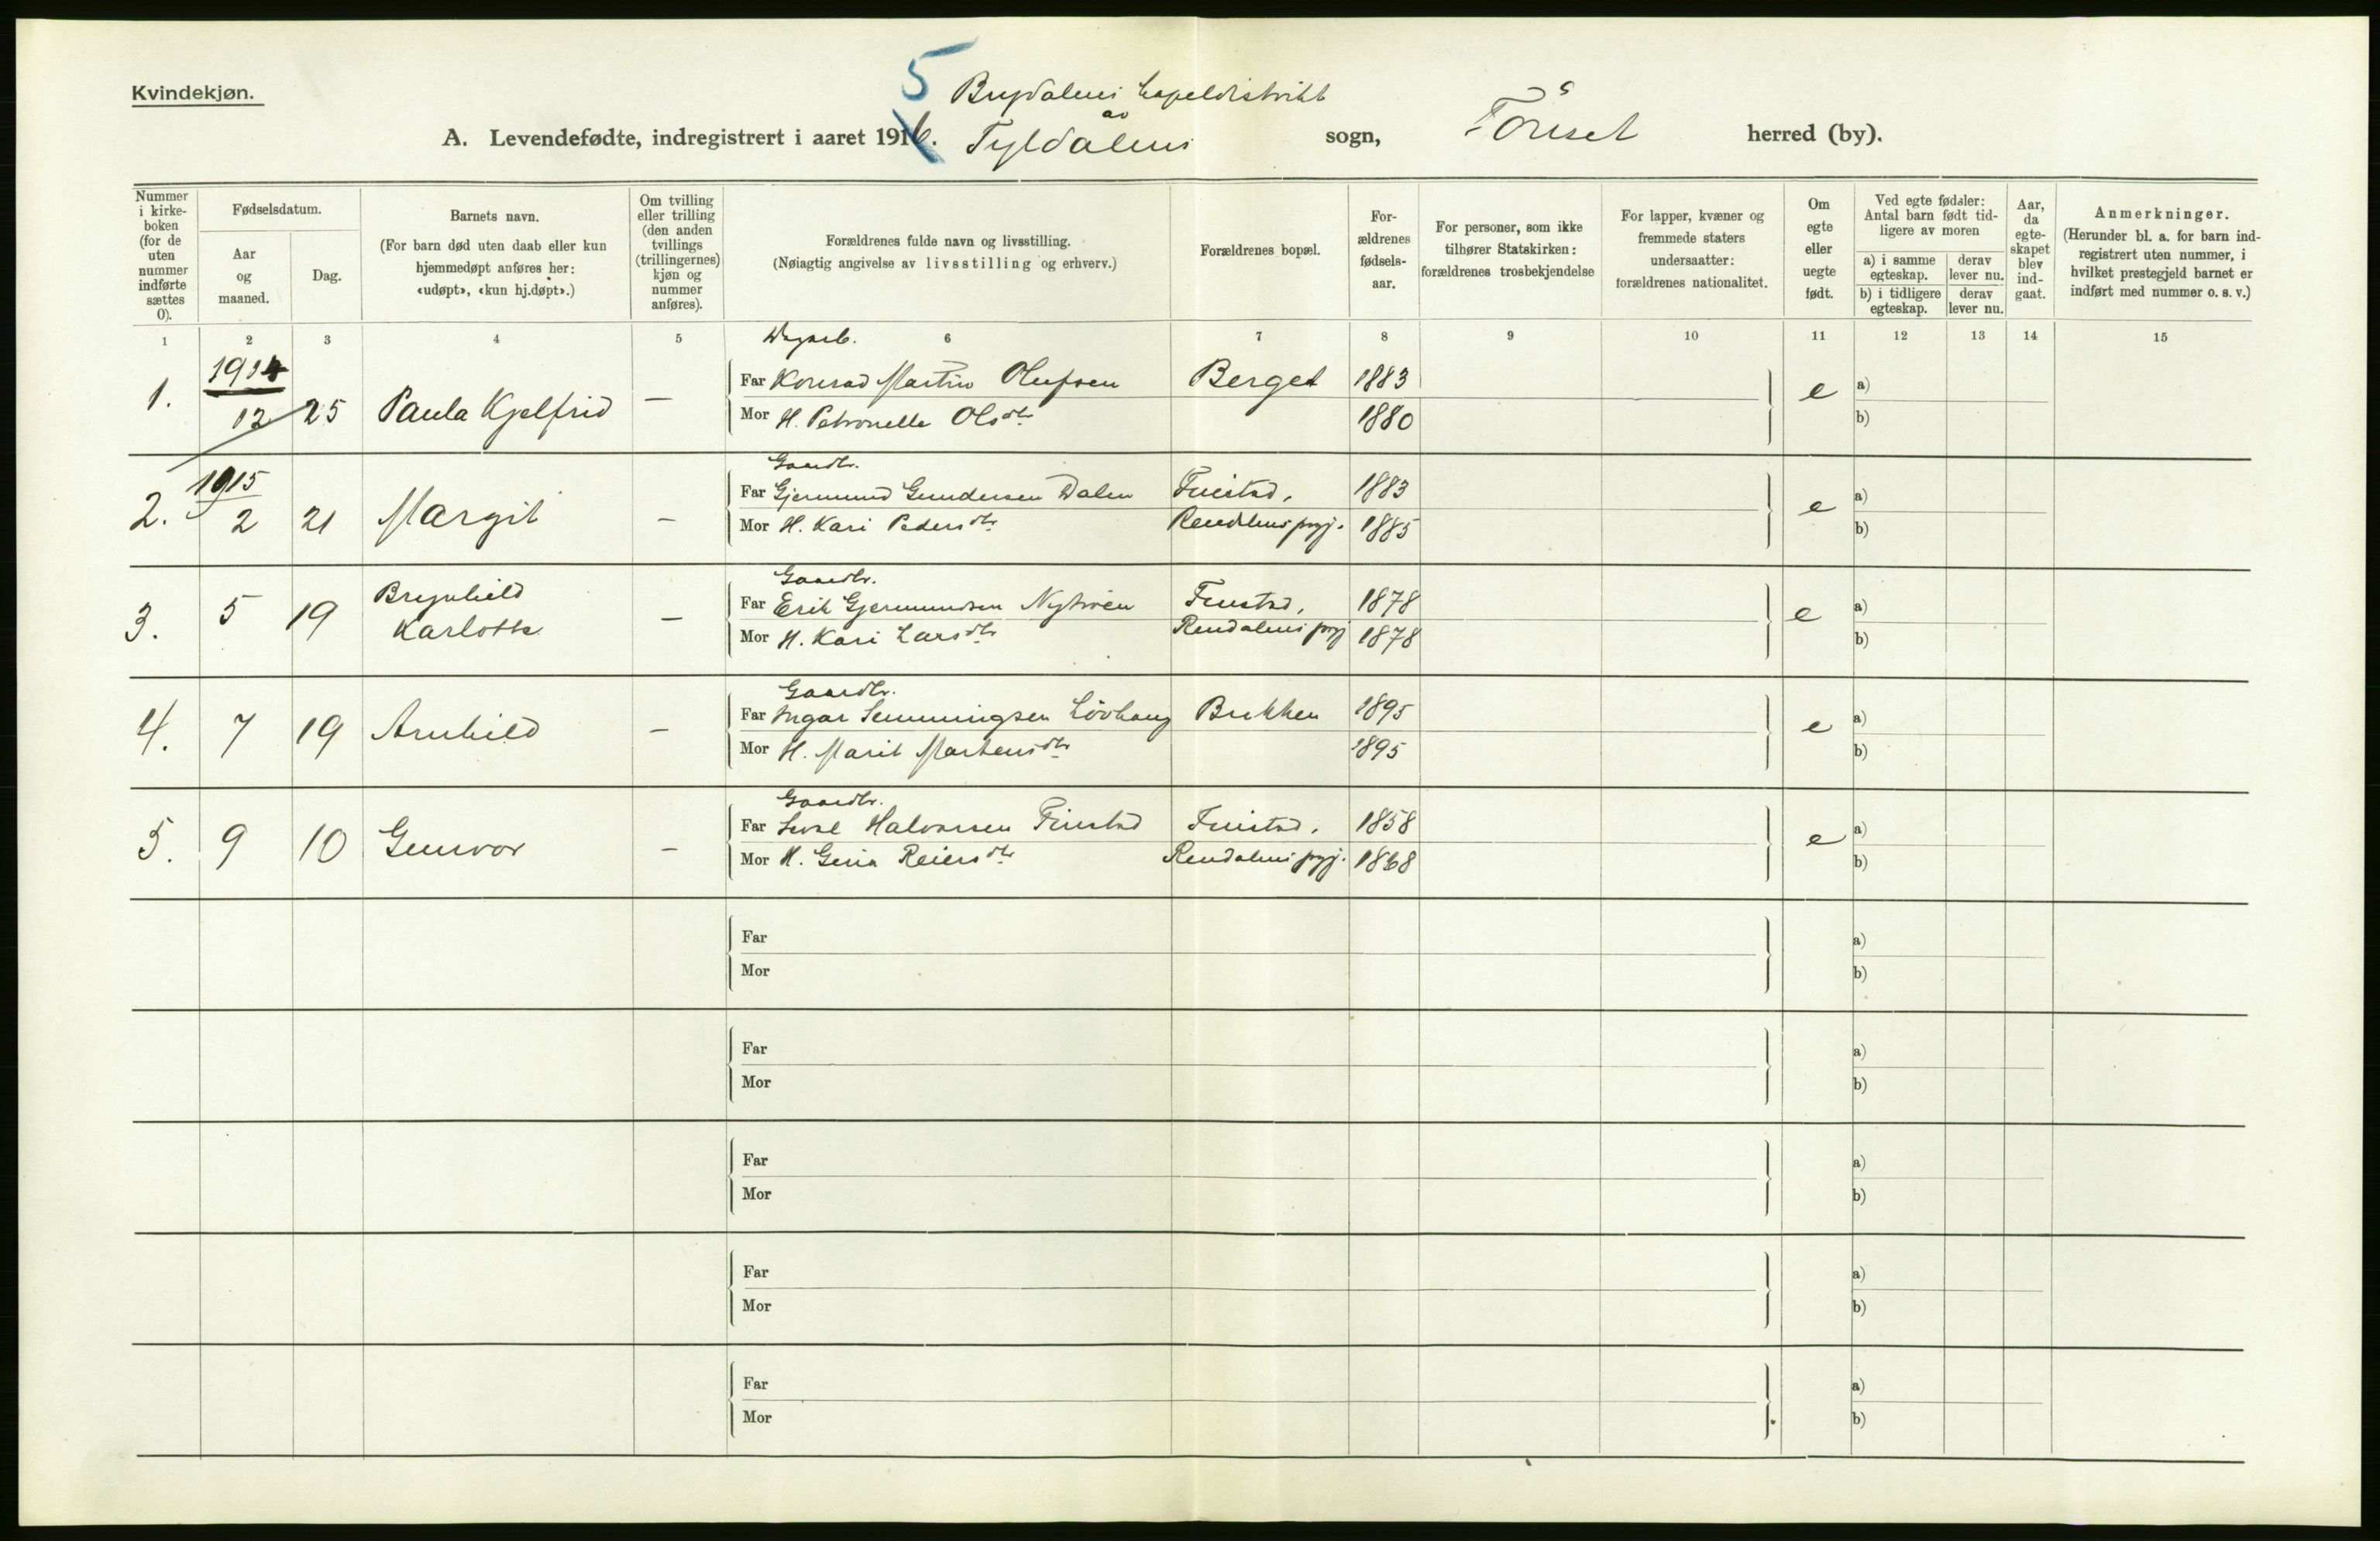 Kvindekjøn.
5
Brydalens kapeldistrikt
av
A. Levendefødte, indregistrert i aaret 1916. Tyldalens sogn, Tönset herred (by).
Nummer i kirkeboken (for de uten nummer indførte sættes 0).
Fødselsdatum.
Aar og maaned.
Dag.
Barnets navn.
(For barn død uten daab eller kun hjemmedøpt anføres her: «udøpt», «kun hj.døpt».)
Om tvilling eller trilling (den anden tvillings (trillingernes) kjøn og nummer anføres).
Forældrenes fulde navn og livsstilling.
(Nøiagtig angivelse av livsstilling og erhverv.)
Forældrenes bopæl.
Forældrenes fødselsaar.
For personer, som ikke tilhører Statskirken: forældrenes trosbekjendelse
For lapper, kvæner og fremmede staters undersaatter: forældrenes nationalitet.
Om egte eller uegte født.
Ved egte fødsler: Antal barn født tidligere av moren
a) i samme egteskap.
derav lever nu.
b) i tidligere egteskap.
derav lever nu.
Aar, da egteskapet blev indgaat.
Anmerkninger.
(Herunder bl. a. for barn indregistrert uten nummer, i hvilket prestegjeld barnet er indført med nummer o. s. v.)
1 2 3 4 5 6 7 8 9 10 11 12 13 14 15
1914
1. 12 25 Paula Kjelfrid —
Far Konrad Martin Olufsen Berget 1883 e a)
Mor H. Petronelle Olsdtr 1880 b)
1915
2. 2 21 Margit —
Gaardbr.
Far Gjermund Gundersen Dalen Finstad, 1883 e a)
Mor H. Kari Pedersdtr Rendalens prgj. 1885 b)
3. 5 19 Brynhild Karlotte —
Gaardbr.
Far Erik Gjermundsen Nytröen Finstad, 1878 e a)
Mor H. Kari Larsdtr Rendalens prgj 1878 b)
4. 7 19 Arnhild —
Gaardbr.
Far Ingar Semmingsen Lövhaug Brekken 1895 e a)
Mor H. Marit Martensdtr 1895 b)
5. 9 10 Gunvor —
Gaardbr.
Far Halvorsen Finstad Finstad, 1858 e a)
Mor H. Gina Reiersdtr Rendalens prgj. 1868 b)
Far a)
Mor b)
Far a)
Mor b)
Far a)
Mor b)
Far a)
Mor b)
Far a)
Mor b)